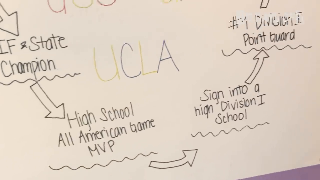 IF & State
Champion
UCLA
High School
All American Game
MVP
Sign into a
high Division I
School
#1 Division I
Point Guard